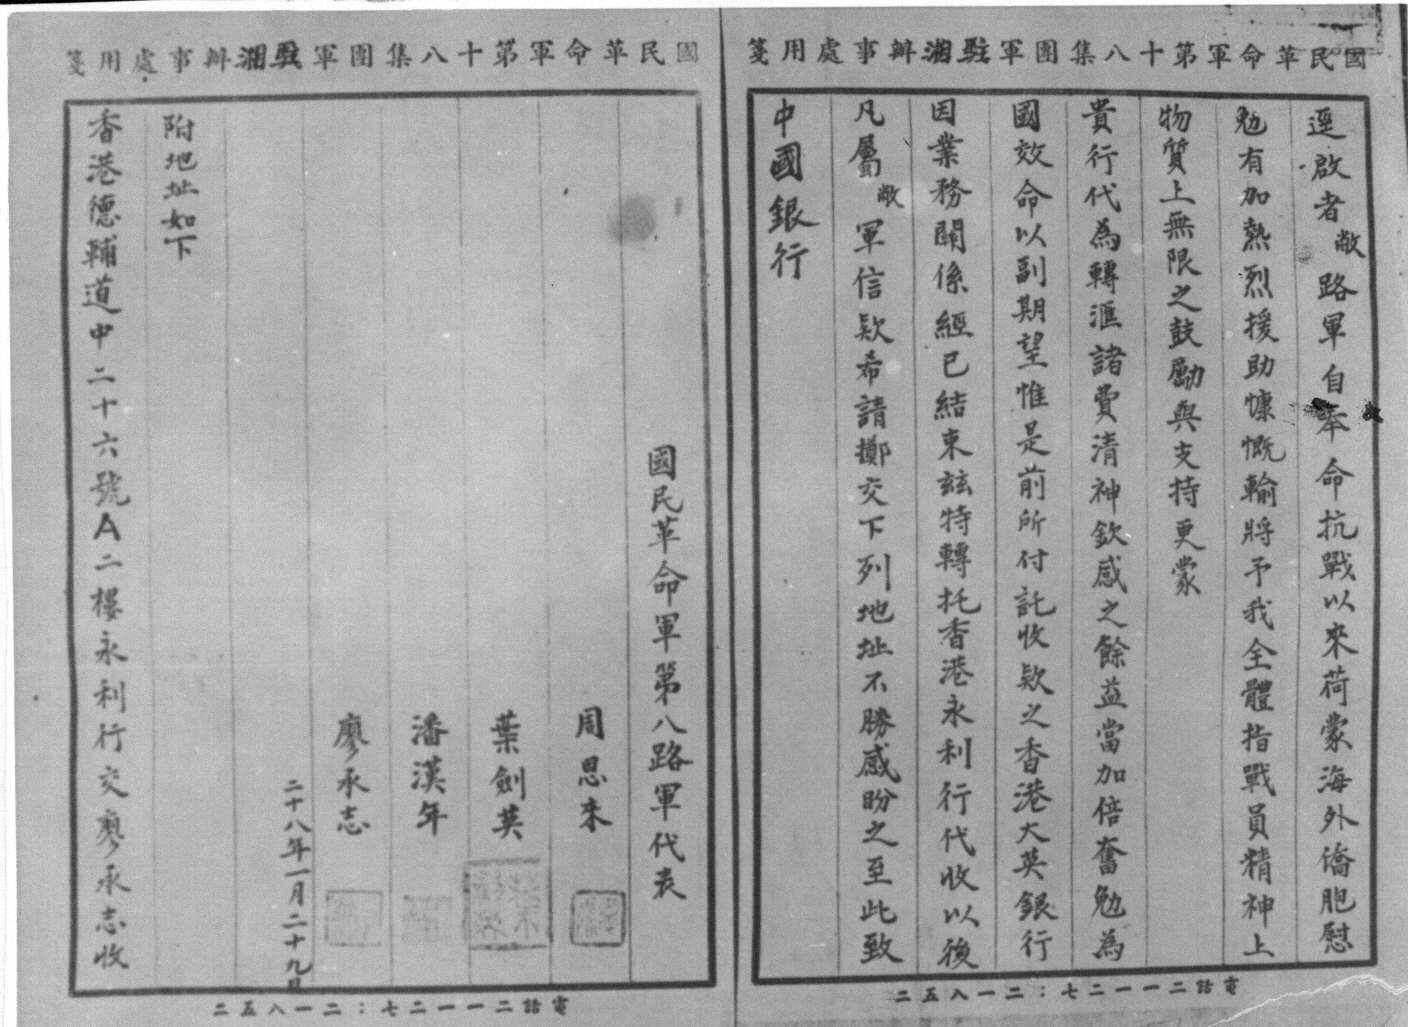 國民革命軍第十八集團軍駐湘辦事處用箋
逕啟者敝路軍自奉命抗戰以來荷蒙海外僑胞慰
勉有加熱烈援助慷慨輸將予我全體指戰員精神上
物質上無限之鼓勵與支持更蒙
貴行代為轉滙諸費清神欽感之餘益當加倍奮勉為
國效命以副期望惟是前所付託收欵之香港大英銀行
因業務關係經已結束茲特轉托香港永利行代收以後
凡屬敝軍信欵希請擲交下列地址不勝感盼之至此致
中國銀行
電話二一一二七：二一八五二
國民革命軍第十八集團軍駐湘辦事處用箋
國民革命軍第八路軍代表
周恩來
葉劍英
潘漢年
廖承志
二十八年一月二十九日
附地址如下
香港德輔道中二十六號A二樓永利行交廖承志收
電話二一一二七：二一八五二